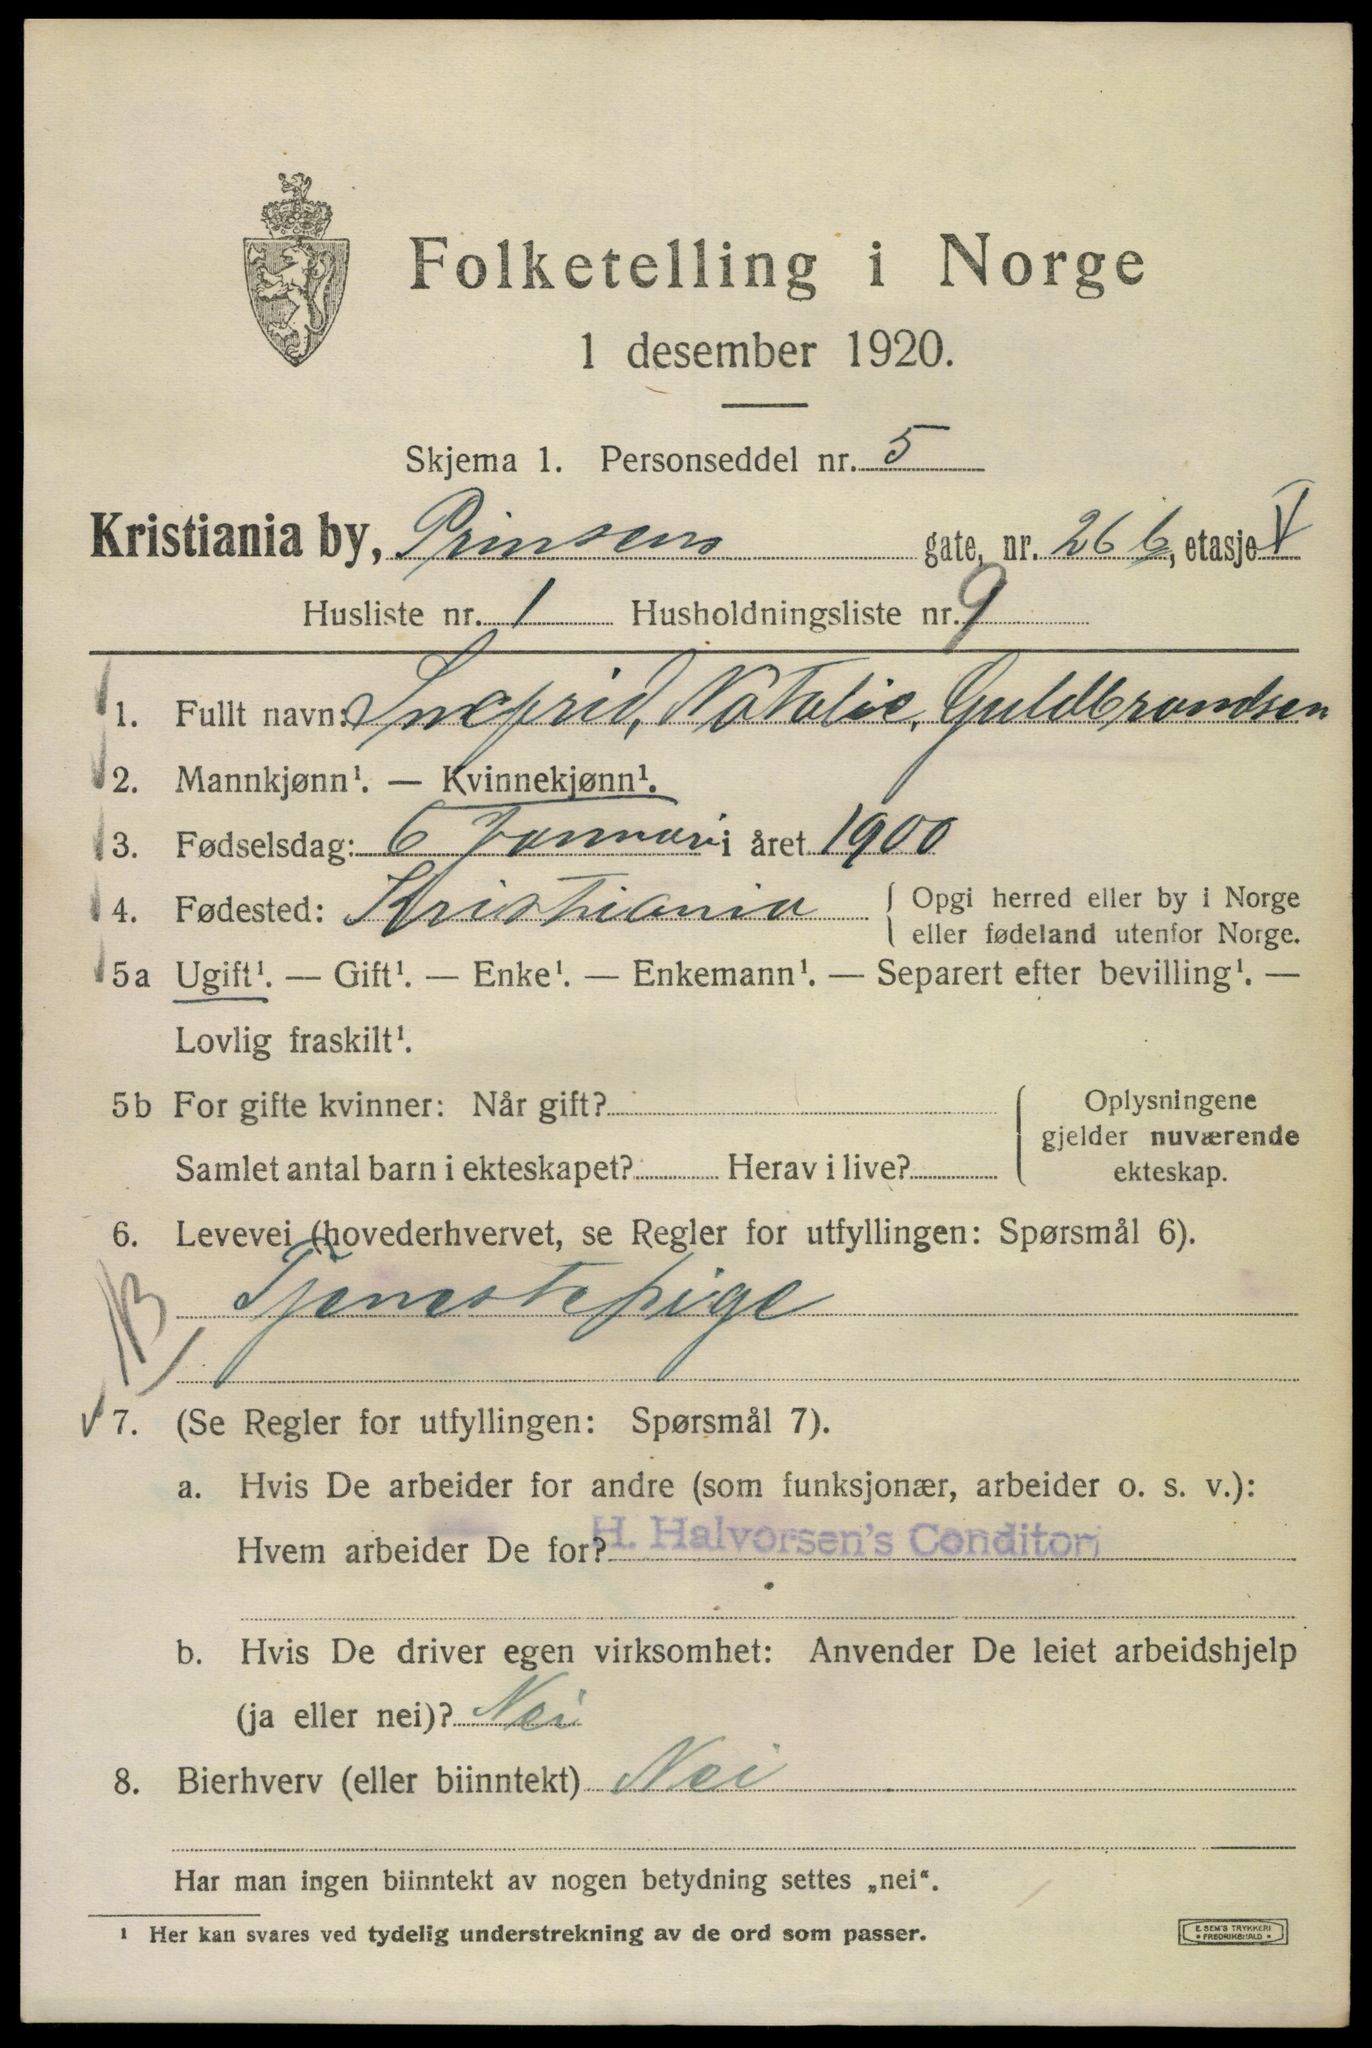 Folketelling i Norge
1 desember 1920.
Skjema 1. Personseddel nr. 5
Kristiania by, Prinsens gate, nr. 26 b, etasje V
Husliste nr. 1 Husholdningsliste nr. 9
1. Fullt navn: Ingfrid, Natalie, Guldbrandsen
2. Mannkjønn¹. — Kvinnekjønn¹.
3. Fødselsdag: 6 Januar i året 1900
4. Fødested: Kristiania { Opgi herred eller by i Norge
eller fødeland utenfor Norge.
5a Ugift¹. — Gift¹. — Enke¹. — Enkemann¹. — Separert efter bevilling¹. —
Lovlig fraskilt¹.
5b For gifte kvinner: Når gift? { Oplysningene
gjelder nuværende
Samlet antal barn i ekteskapet? Herav i live? ekteskap.
6. Levevei (hovederhvervet, se Regler for utfyllingen: Spørsmål 6).
B Tjenestepige
7. (Se Regler for utfyllingen: Spørsmål 7).
a. Hvis De arbeider for andre (som funksjonær, arbeider o. s. v.):
Hvem arbeider De for? H. Halvorsen's Conditori
b. Hvis De driver egen virksomhet: Anvender De leiet arbeidshjelp
(ja eller nei)? Nei
8. Bierhverv (eller biinntekt) Nei
Har man ingen biinntekt av nogen betydning settes „nei“.
¹ Her kan svares ved tydelig understrekning av de ord som passer.
E. SEM'S TRYKKERI
* FREDRIKSHALD *